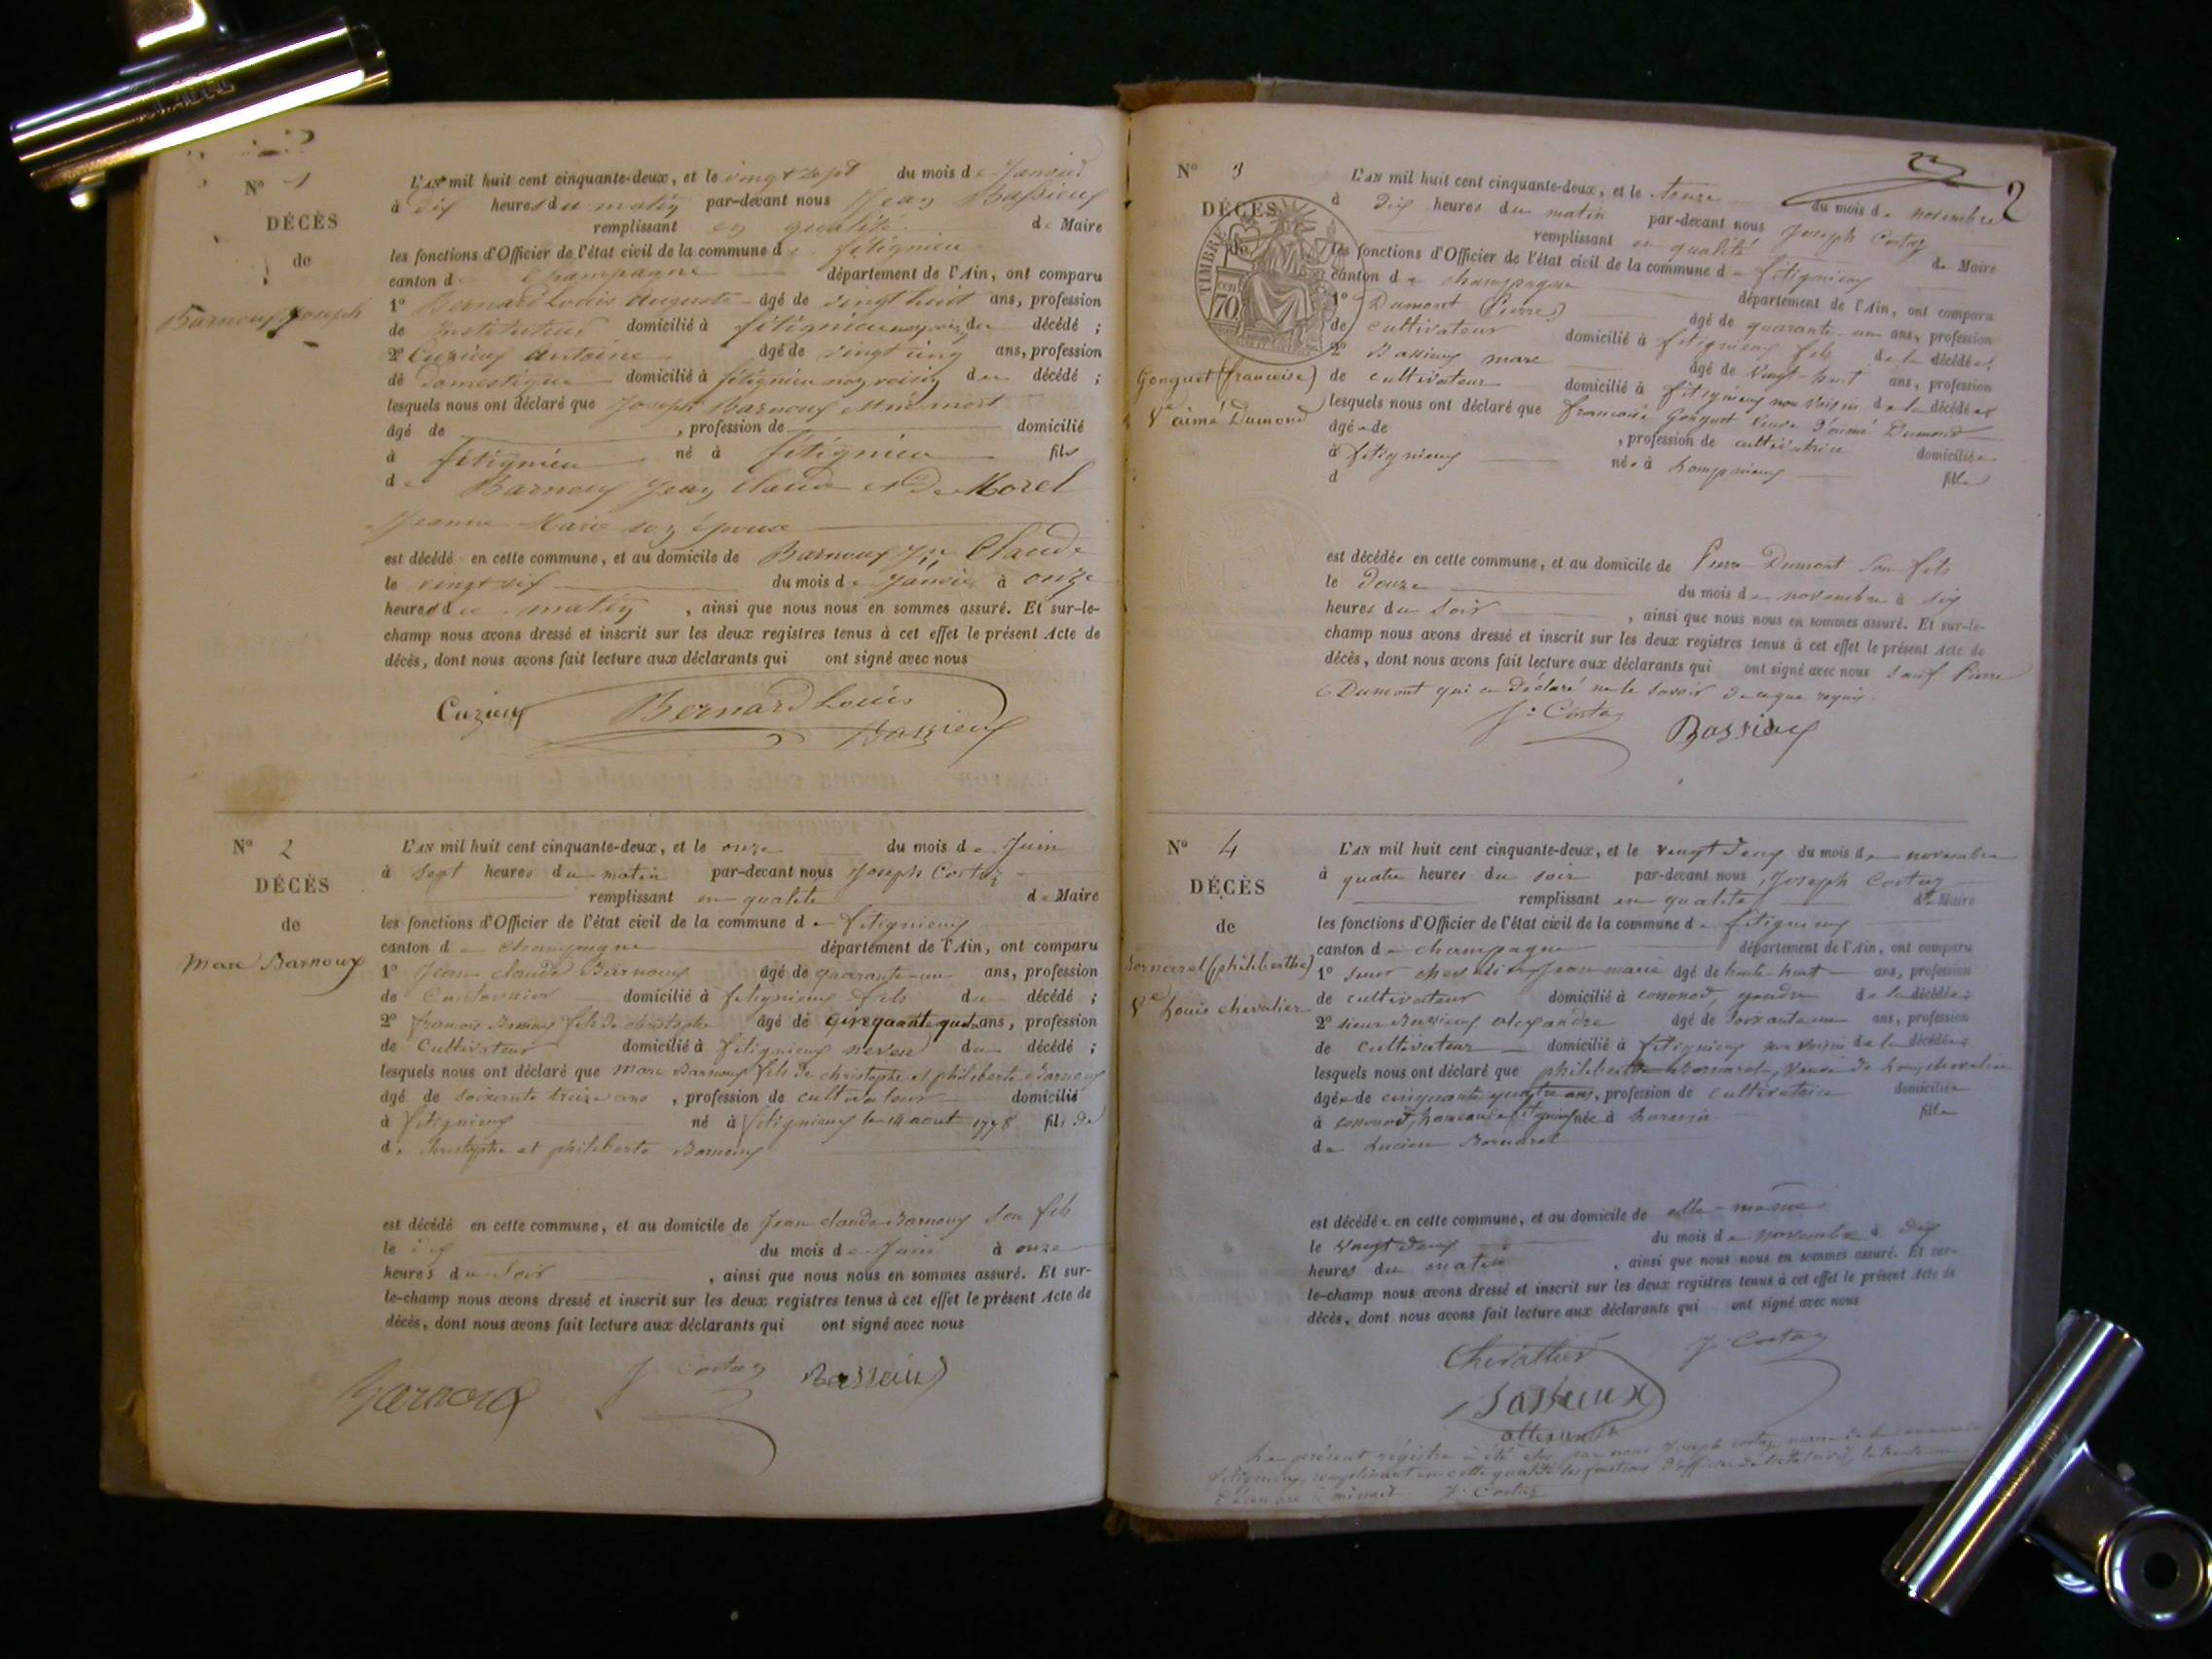 N° 1
DÉCÈS
de
Barnoux Joseph
L'AN mil huit cent cinquante-deux, et le vingt sept du mois de Janvier
à dix heures du matin par-devant nous Jean Bassieux
remplissant en qualité de Maire
les fonctions d'Officier de l'état civil de la commune de fitignieu
canton de Champagne département de l'Ain, ont comparu
1° Bernard Louis Auguste âgé de vingt huit ans, profession
de Instituteur domicilié à fitignieu non voisin du décédé ;
2° Cuzieux Antoine âgé de vingt cinq ans, profession
de Domestique domicilié à fitignieu non voisin du décédé ;
lesquels nous ont déclaré que Joseph Barnoux
âgé de , profession de domicilié
à fitignieu né à fitignieu fils
de Barnoux Jean Claude et de Morel
Jeanne Marie son épouse
est décédé en cette commune, et au domicile de Barnoux Jn Claude
le vingt six du mois de Janvier à onze
heures du matin , ainsi que nous nous en sommes assuré. Et sur-le-
champ nous avons dressé et inscrit sur les deux registres tenus à cet effet le présent Acte de
décès, dont nous avons fait lecture aux déclarants qui ont signé avec nous
Cuzieux Bernard Louis
Bassieux
N° 2
DÉCÈS
de
Marc Barnoux
L'AN mil huit cent cinquante-deux, et le onze du mois de Juin
à Sept heures du matin par-devant nous Joseph Costaz
remplissant en qualité de Maire
les fonctions d'Officier de l'état civil de la commune de fitignieux
canton de champagne département de l'Ain, ont comparu
1° Jean claude Barnoux âgé de quarante-un ans, profession
de Cantonnier domicilié à fitignieux fils du décédé ;
2° françois Barnoux fils de christophe âgé de cinquante quatre ans, profession
de Cultivateur domicilié à fitignieux neveu du décédé ;
lesquels nous ont déclaré que Marc Barnoux fils de christophe et philiberte Barnoux
âgé de soixante treize ans , profession de cultivateur domicilié
à fitignieux né à fitignieux le 14 aout 1778 fils de
de christophe et philiberte Barnoux
est décédé en cette commune, et au domicile de Jean claude Barnoux son fils
le dix du mois de Juin à onze
heures du soir , ainsi que nous nous en sommes assuré. Et sur-
le-champ nous avons dressé et inscrit sur les deux registres tenus à cet effet le présent Acte de
décès, dont nous avons fait lecture aux déclarants qui ont signé avec nous
Barnoux J Costaz Bassieux
2
N° 3
DÉCÈS
de
TIMBRE
70
Gonguet (francoise)
Ve aimé Dumond
L'AN mil huit cent cinquante-deux, et le treize du mois de novembre
à dix heures du matin par-devant nous Joseph Costaz
remplissant en qualité de Maire
les fonctions d'Officier de l'état civil de la commune de fitignieux
canton de champagne département de l'Ain, ont comparu
1° Dumont (Pierre) âgé de quarante-un ans, profession
de cultivateur domicilié à fitignieux fils de la décédée ;
2° Bassieux marc âgé de vingt-huit ans, profession
de cultivateur domicilié à fitignieux non voisin de la décédée
lesquels nous ont déclaré que francoise Gonguet veuve d'aimé Dumond
âgée de , profession de cultivatrice domiciliée
à fitignieux née à fille
d
est décédée en cette commune, et au domicile de Pierre Dumont son fils
le Douze du mois de novembre à six
heures du soir , ainsi que nous nous en sommes assuré. Et sur-le-
champ nous avons dressé et inscrit sur les deux registres tenus à cet effet le présent Acte de
décès, dont nous avons fait lecture aux déclarants qui ont signé avec nous sauf Pierre
Dumont qui a déclaré ne le savoir de ce que requis.
J. Costaz Bassieux
N° 4
DÉCÈS
de
Bornarel (philiberthe)
Ve Louis chevalier
L'AN mil huit cent cinquante-deux, et le vingt deux du mois de novembre
à quatre heures du soir par-devant nous, Joseph Costaz
remplissant en qualité de Maire
les fonctions d'Officier de l'état civil de la commune de fitignieux
canton de champagne département de l'Ain, ont comparu
1° sieur chevalier Jean marie âgé de trente-huit ans, profession
de cultivateur domicilié à cononod, gendre de la décédée ;
2° sieur Bassieux alexandre âgé de soixante un ans, profession
de cultivateur domicilié à fitignieux non voisin de la décédée
lesquels nous ont déclaré que philiberthe Bornarel, veuve de Louis chevalier
âgée de cinquante quatre ans, profession de cultivatrice domiciliée
à cononod, hameau de fitignieu née à fille
de Lucien Bornarel
est décédée en cette commune, et au domicile de elle-même
le vingt deux du mois de novembre à dix
heures du matin , ainsi que nous nous en sommes assuré. Et sur-
le-champ nous avons dressé et inscrit sur les deux registres tenus à cet effet le présent Acte de
décès, dont nous avons fait lecture aux déclarants qui ont signé avec nous
Chevallier J Costaz
Bassieux
Le présent régistre a été clos par nous Joseph costaz maire de la commune
fitignieux, remplissant en cette qualité les fonctions d'officier de l'état civil, le trente un
décembre à minuit. J. Costaz